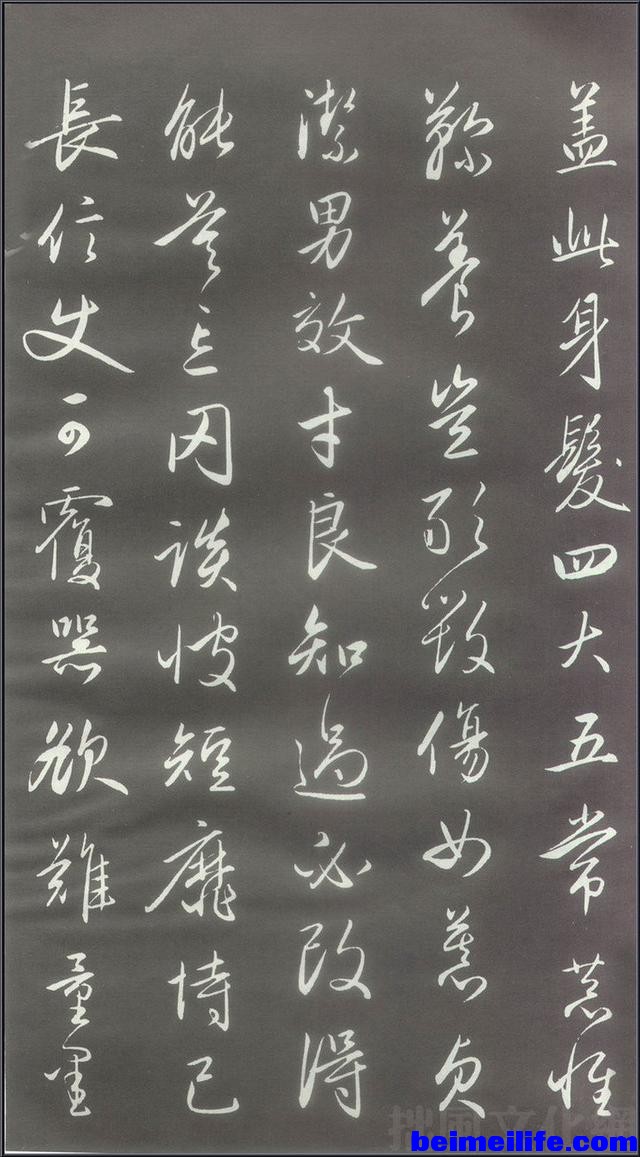 盖此身髮四大五常恭惟
鞠養豈敢毀傷女慕貞
潔男效才良知過必改得
能莫忘罔談彼短靡恃己
長信使可覆器欲難量墨
beimeilife.com